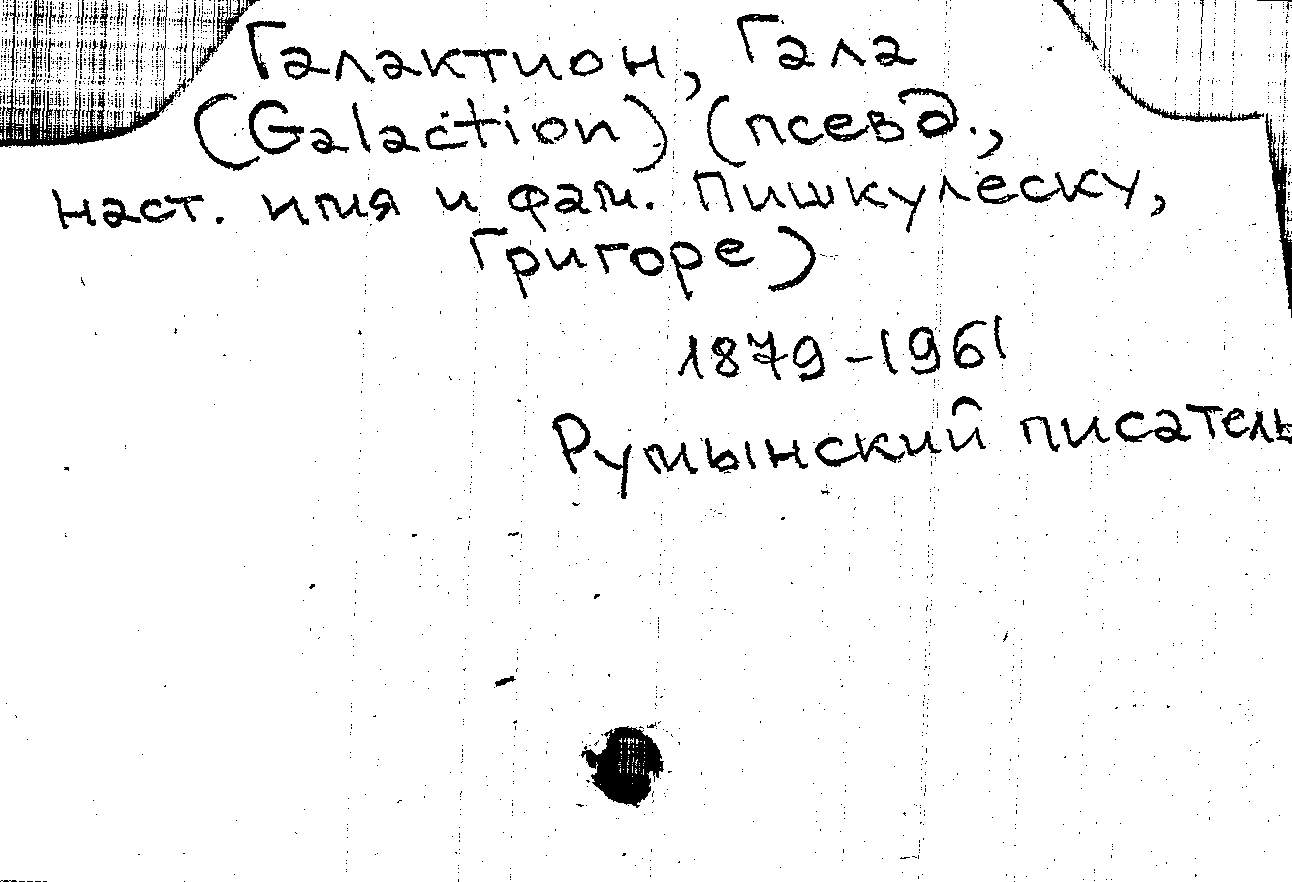 Галактион, Гала
(Galaction) (псевд.,
наст. имя и фам. Пишкулеску,
Григоре)
1879-1961
Румынский писатель